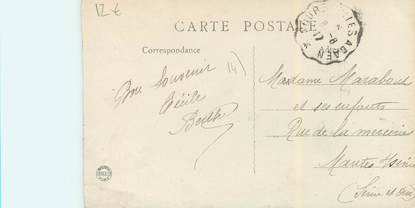 12 €
CARTE POSTALE
Correspondance
Bon Souvenir
Cécile
Berthe
14)
Madame Marabout
et ses enfants
Rue de la
Mantes
(Seine et Oise)